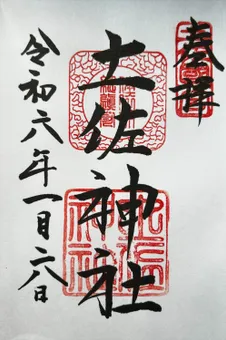 奉拝
土佐神社
令和六年一月二八日